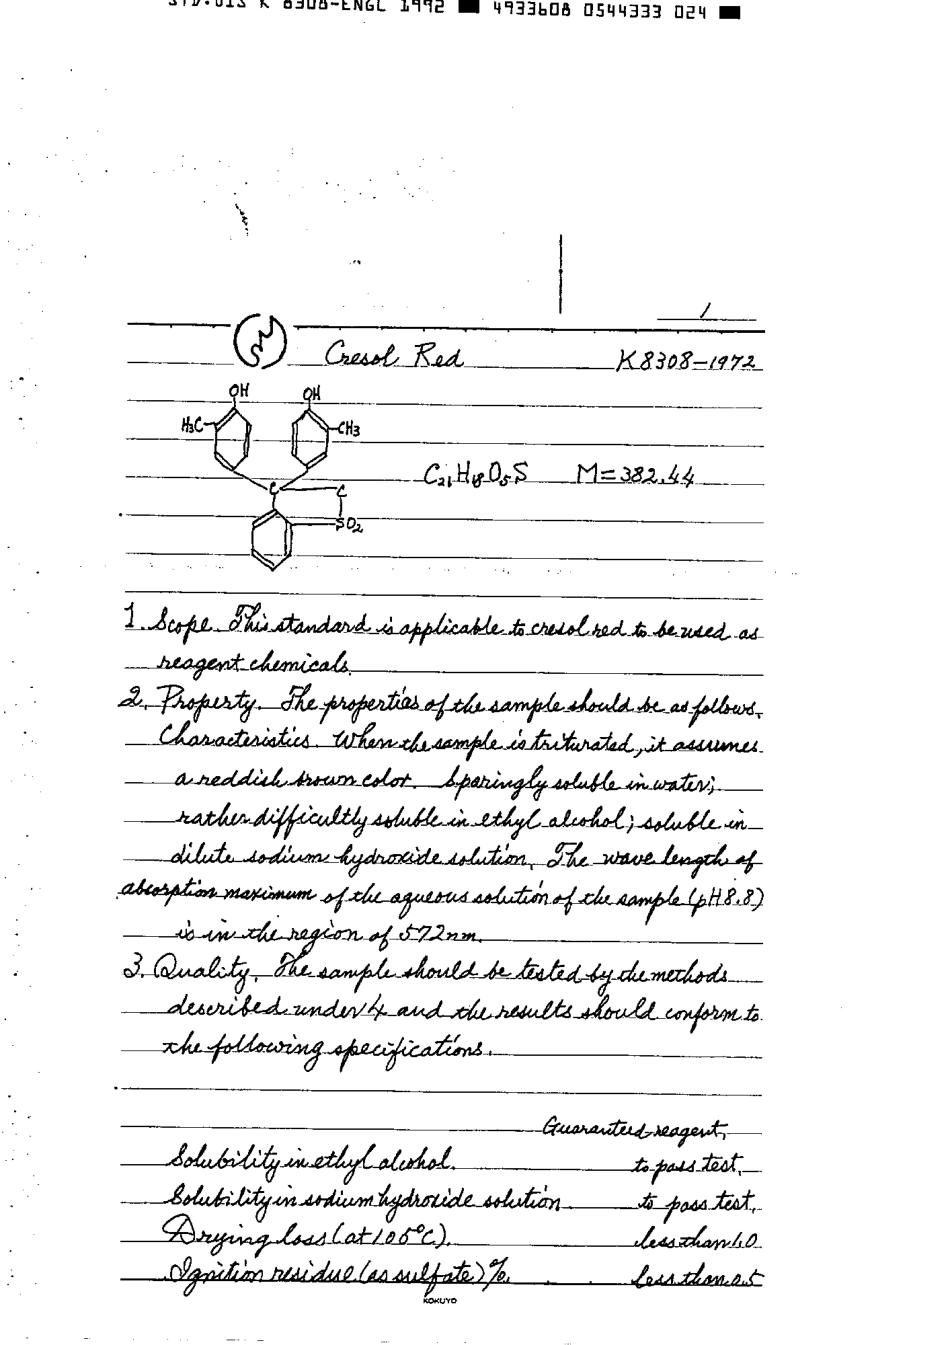 STD.JIS K 8308-ENGL 1992 ■ 4933608 0544333 024 ■
1
Cresol Red K8308-1972
OH OH
H3C CH3
C21H18O5S M=382.44
C C
SO2
1. Scope. This standard is applicable to cresol red to be used as
reagent chemicals.
2. Property. The properties of the sample should be as follows.
Characteristics. When the sample is triturated, it assumes
a reddish brown color. Sparingly soluble in water;
rather difficultly soluble in ethyl alcohol; soluble in
dilute sodium hydroxide solution. The wave length of
absorption maximum of the aqueous solution of the sample (pH8.8)
is in the region of 572nm.
3. Quality. The sample should be tested by the methods
described under 4 and the results should conform to
the following specifications.
Guaranteed reagent.
Solubility in ethyl alcohol. to pass test.
Solubility in sodium hydroxide solution to pass test.
Drying loss (at 105°C). less than 1.0
Ignition residue (as sulfate)%. less than 0.5
KOKUYO